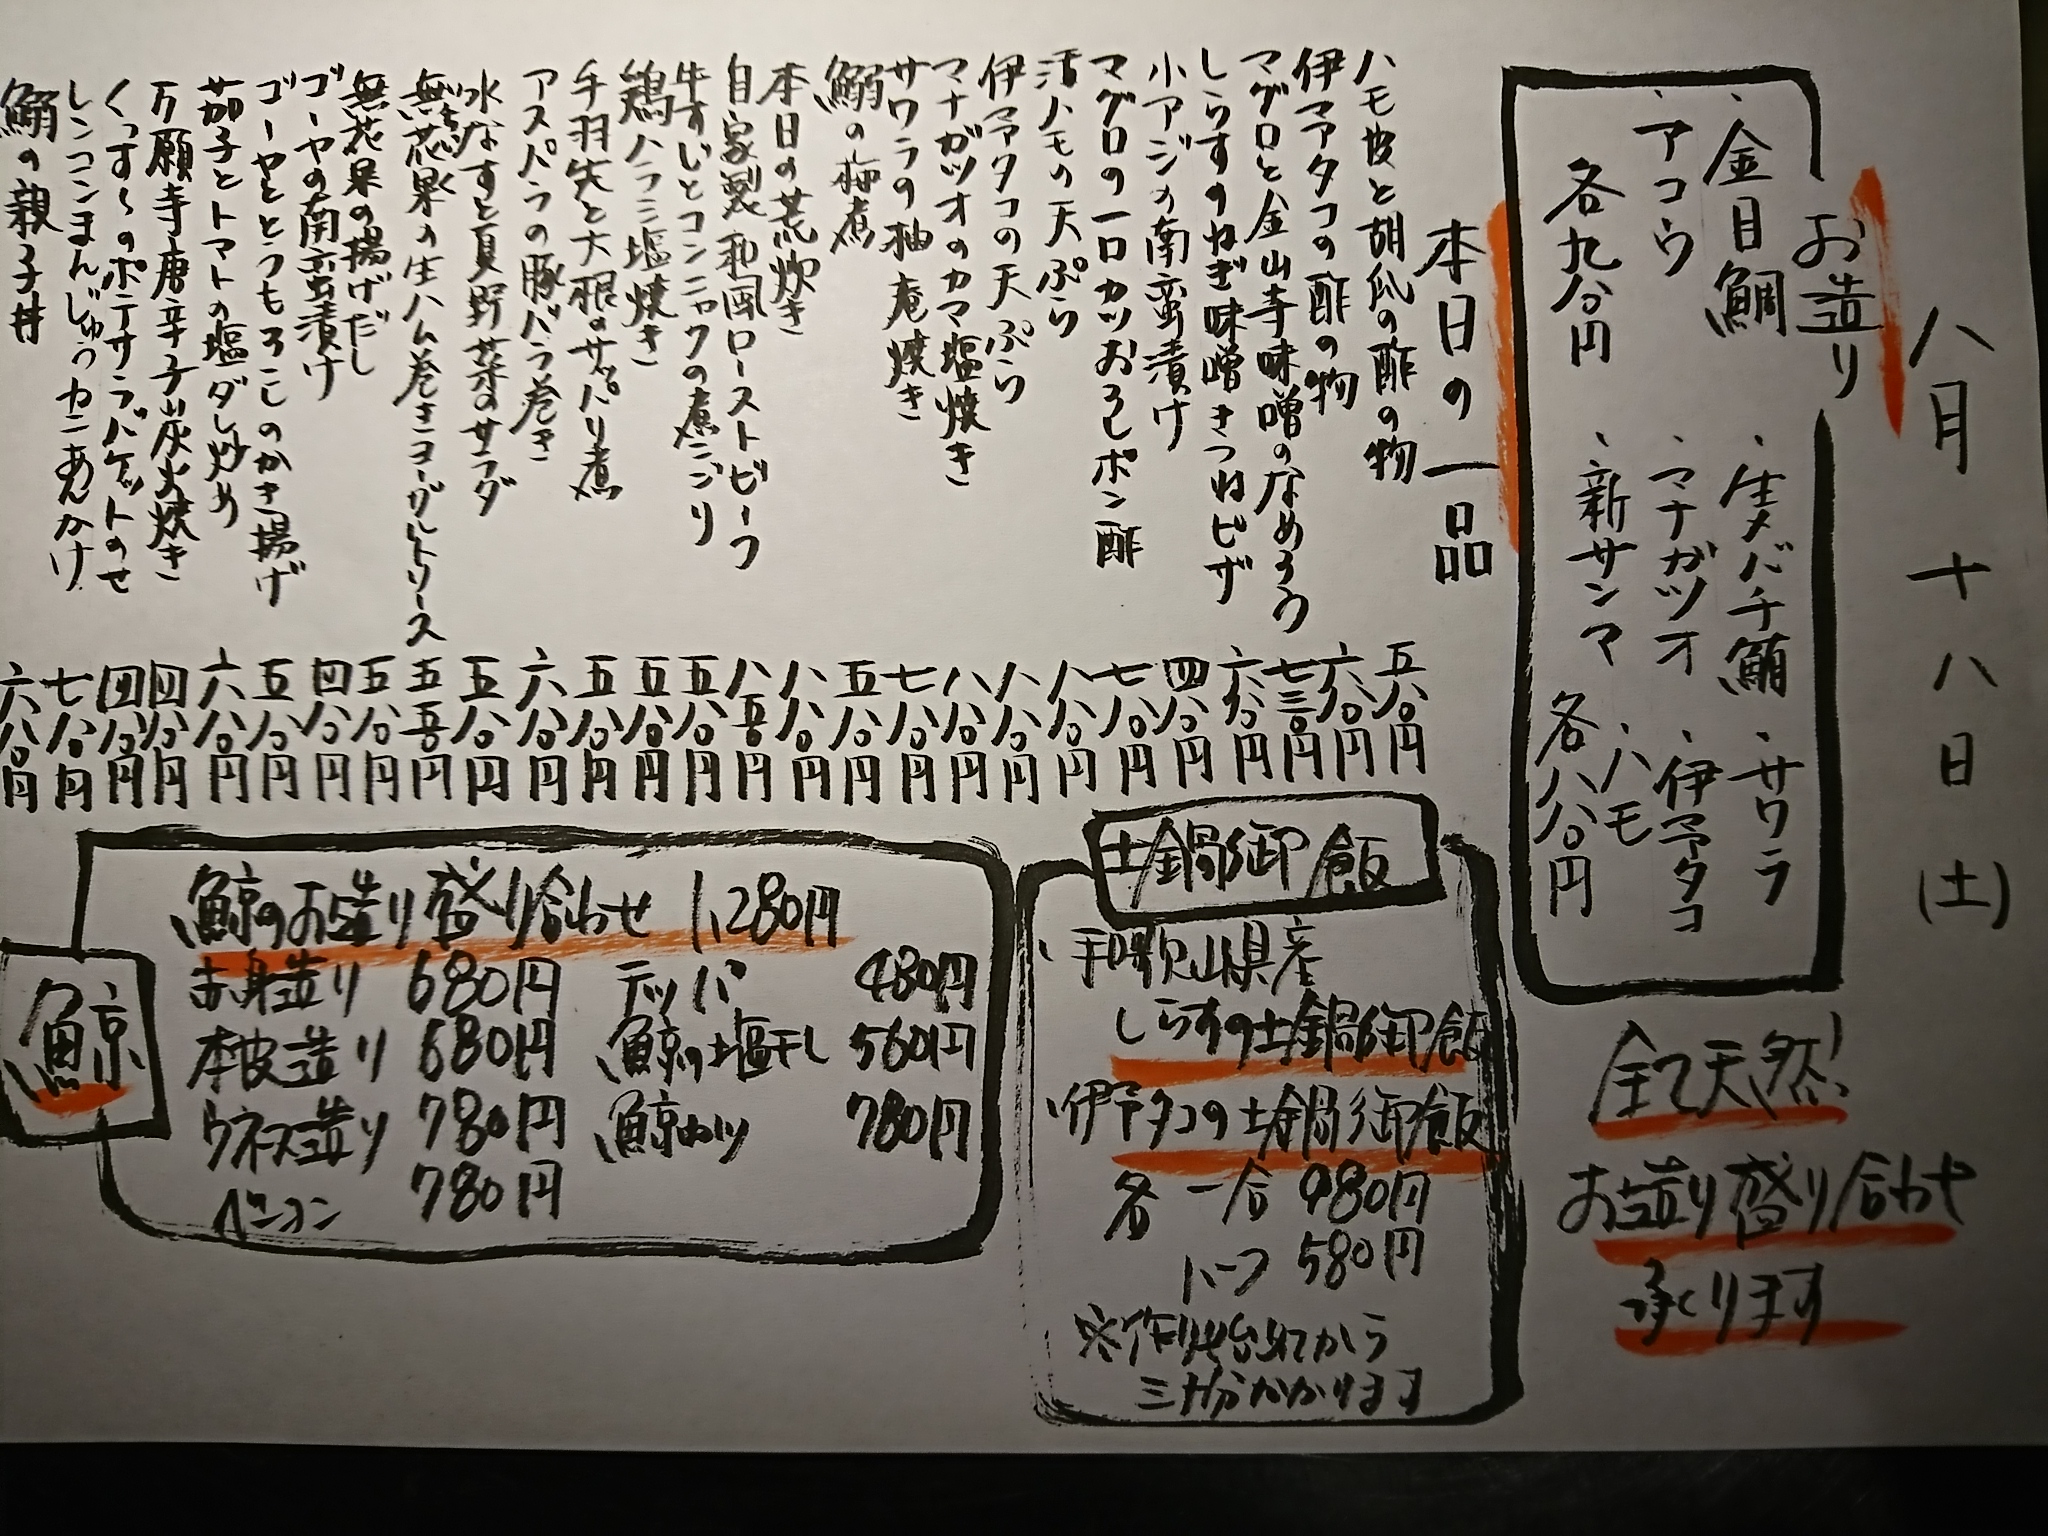 八月十八日(土)
お造り
・金目鯛
・アコウ
各九八〇円
・生メバチ鮪
・サワラ
・マナガツオ
・伊予タコ
・新サンマ
・ハモ
各八八〇円
全て天然!
お造り盛り合わせ
承くります
本日の一品
ハモ皮と胡瓜の酢の物 五八〇円
伊予タコの酢の物 六八〇円
マグロと金山寺味噌のなめろう 七三〇円
しらすのねぎ味噌きつねピザ 六八〇円
小アジの南蛮漬け 四八〇円
マグロの一口カツおろしポン酢 七八〇円
活ハモの天ぷら 八八〇円
伊予タコの天ぷら 八八〇円
マナガツオのカマ塩焼き 八八〇円
サワラの柚庵焼き 七八〇円
鰯の梅煮 五八〇円
本日の荒炊き 八八〇円
自家製和風ローストビーフ 八五〇円
牛すじとコンニャクの煮こごり 五八〇円
鶏ハラミ塩焼き 五八〇円
手羽先と大根のサッパリ煮 五八〇円
アスパラの豚バラ巻き 六八〇円
水なすと夏野菜のサラダ 五八〇円
無花果の生ハム巻きヨーグルトソース 五五〇円
無花果の揚げだし 五八〇円
ゴーヤの南蛮漬け 四八〇円
ゴーヤととうもろこしのかき揚げ 五八〇円
茄子とトマトの塩ダレ炒め 六八〇円
万願寺唐辛子炭火焼き 四八〇円
くっすーのポテサラバゲットのせ 四八〇円
レンコンまんじゅうカニあんかけ 七八〇円
鰯の親子丼 六八〇円
土鍋御飯
・和歌山県産
しらすの土鍋御飯
・伊予タコの土鍋御飯
各 一合 980円
ハーフ 580円
※作り始めてから
三十分かかります
鯨
鯨のお造り盛り合わせ 1,280円
赤身造り 680円
本皮造り 680円
ウネス造り 780円
ベーコン 780円
テッパ 480円
鯨の塩干し 560円
鯨カツ 780円